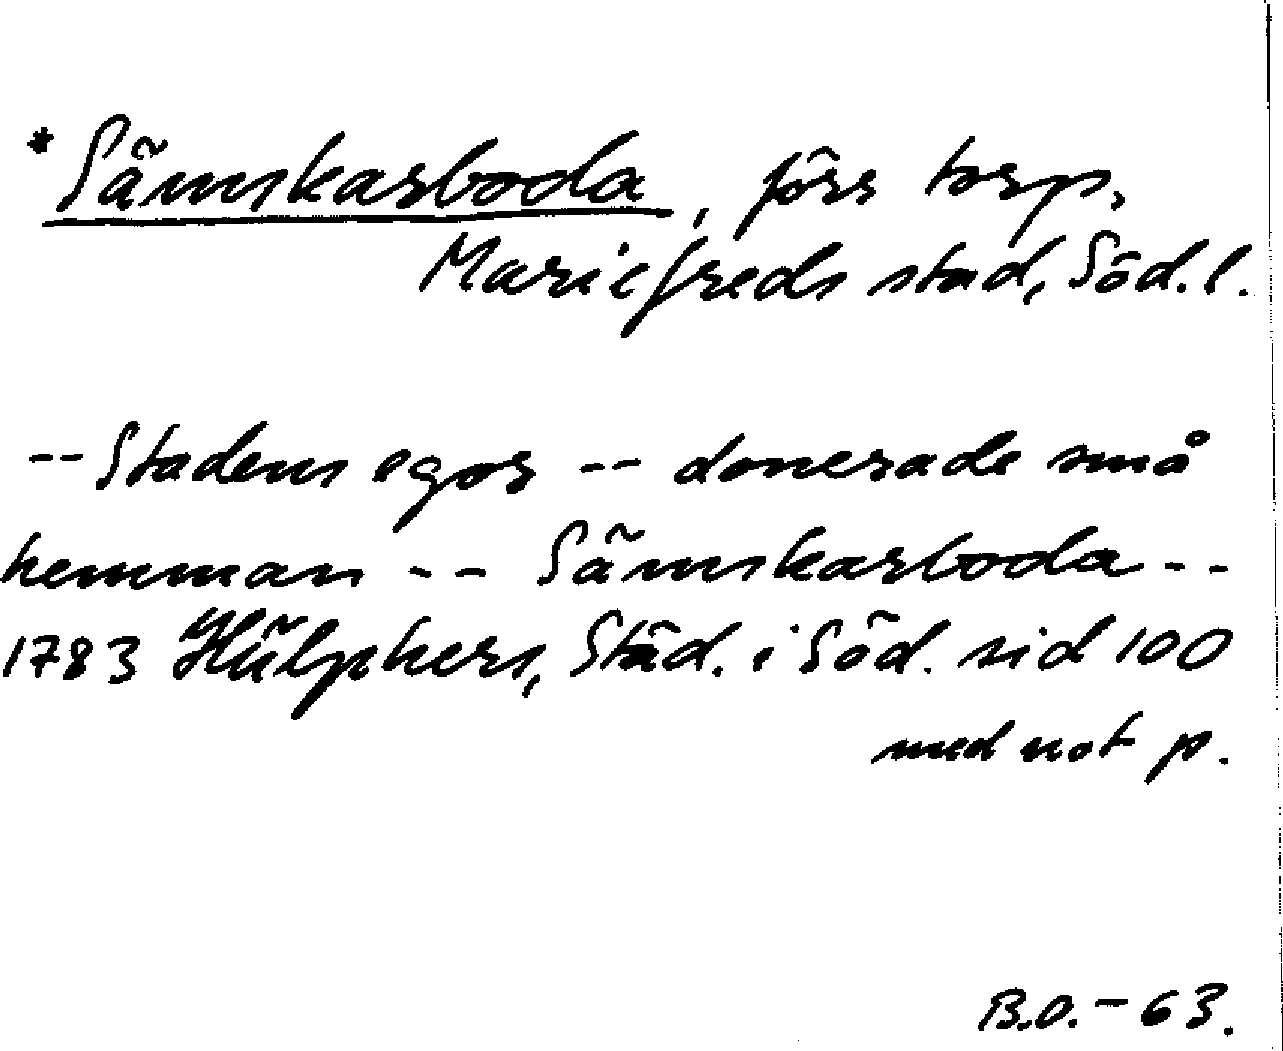 *Sämskarboda, förs torp,
Mariefreds stad, Söd. l.
-- Stadens egor -- donerade små
hemman -- Sämskarboda --
1783 Hülphers, Städ. i Söd. sid 100
med not p.
B.O. - 63.